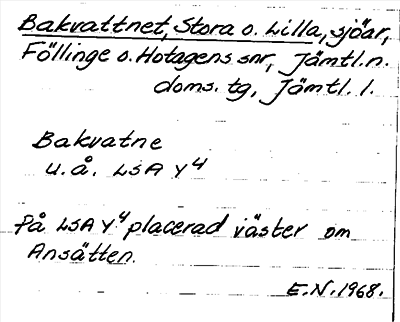 Bakvattnet, Stora o. Lilla, sjöar,
Föllinge o. Hotagens snr, Jämtl. n.
doms. tg, Jämtl. l.
Bakvatne
u.å. LSA Y4
På LSA Y4 placerad väster om
Ansätten.
E.N. 1968.